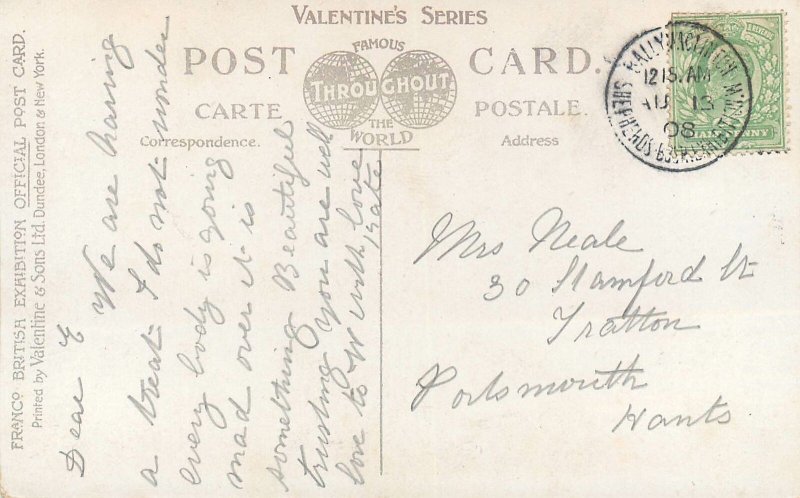 VALENTINE'S SERIES
POST CARD.
FAMOUS
THROUGHOUT
THE
WORLD
CARTE POSTALE.
Correspondence. Address
FRANCO BRITISH EXHIBITION OFFICIAL POST CARD.
Printed by Valentine & Sons Ltd. Dundee, London & New York.
Dear E
We are having
a treat I do not wonder
every body is going
mad over it is
something Beautiful
trusting you are well
love to W with love
Kate
BALLYMACLINTON
12 15 AM
13
08
SHEPHERDS BUSH EXHIBITION
HALFPENNY
Mrs Neale
30 Stamford St
Fratton
Portsmouth
Hants